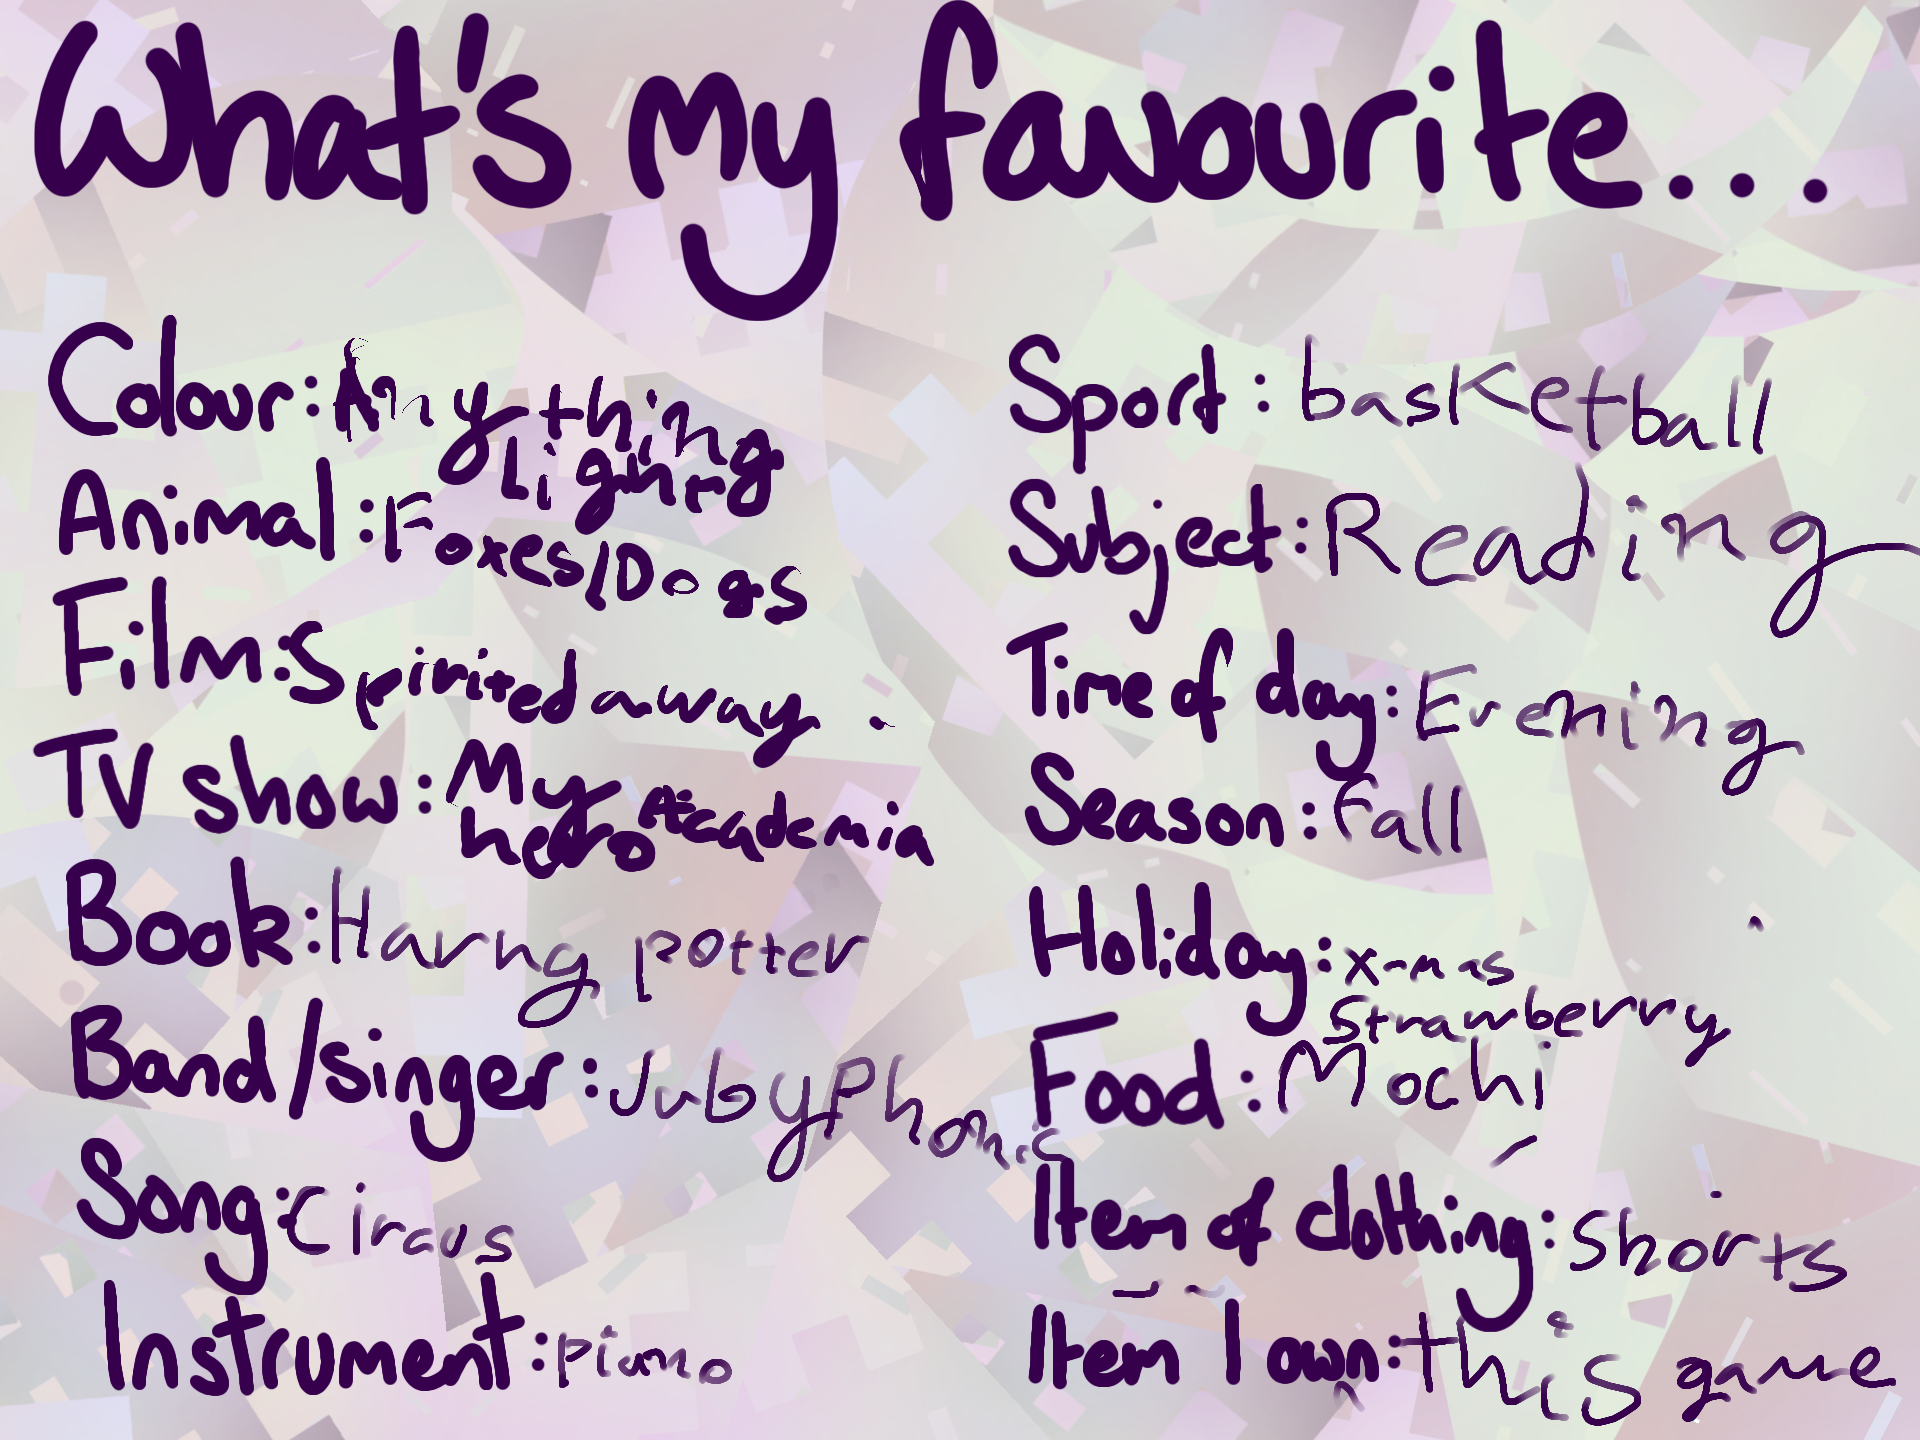 What's my favourite...
Colour: Any thing
Light
Animal: Foxes/Dogs
Film: Spirited away
TV show: My hero Academia
Book: Harry potter
Band/singer: JubyPhonic
Song: Circus
Instrument: piano
Sport: basketball
Subject: Reading
Time of day: Evening
Season: fall
Holiday: x-mas
Food: Strawberry
Mochi
Item of clothing: Shorts
Item I own: this game